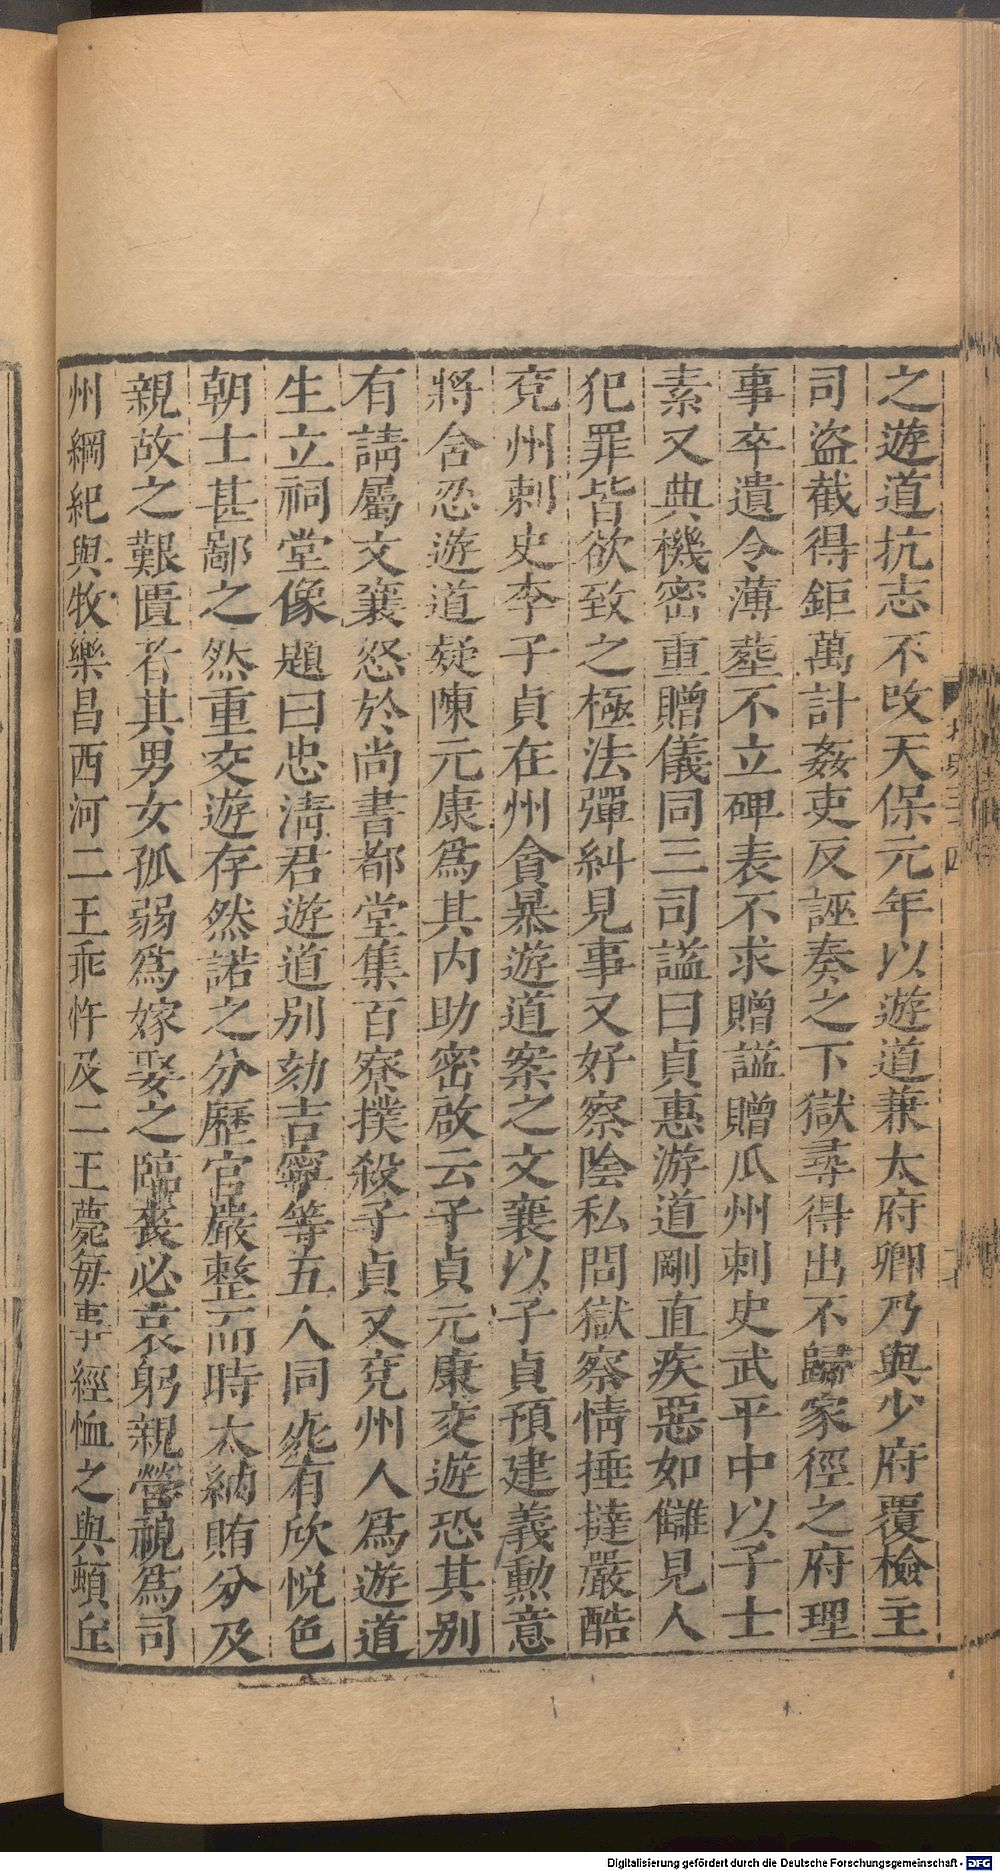 之遊道抗志不改天保元年以遊道兼太府卿乃與少府覆檢主
司盜截得鉅萬計姦吏反誣奏之下獄尋得出不歸家徑之府理
事卒遺令薄塟不立碑表不求贈謚贈瓜州刺史武平中以子士
素又典機密重贈儀同三司謚曰貞惠游道剛直疾惡如讎見人
犯罪皆欲致之極法彈糾見事又好察陰私問獄察情捶撻嚴酷
兗州刺史李子貞在州貪暴遊道案之文襄以子貞預建義勳意
將含忍遊道疑陳元康爲其內助密啟云子貞元康交遊恐其别
有請屬文襄怒於尚書都堂集百寮撲殺子貞又兗州人爲遊道
生立祠堂像題曰忠淸君遊道别劾吉寧等五人同死有欣悅色
朝士甚鄙之然重交遊存然諾之分歷官嚴整而時大納賄分及
親故之艱匱者其男女孤弱爲嫁娶之臨䘮必哀躬親營視爲司
州綱紀與牧樂昌西河二王乖忤及二王薨每事經恤之與頓丘
Digitalisierung gefördert durch die Deutsche Forschungsgemeinschaft - DFG